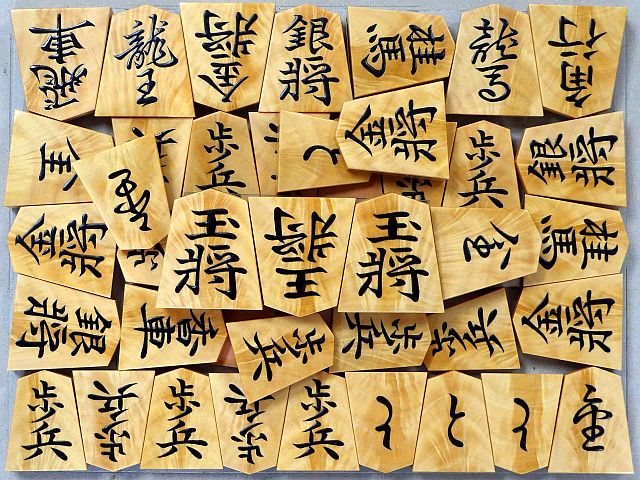 飛車 龍王 金将 銀将 桂馬 龍馬 角行
全 歩兵 と 金将 歩兵 銀将
金将 王将 王将 王将 桂馬
銀将 香車 歩兵 歩兵 歩兵 金将
歩兵 歩兵 歩兵 歩兵 歩兵 と と と